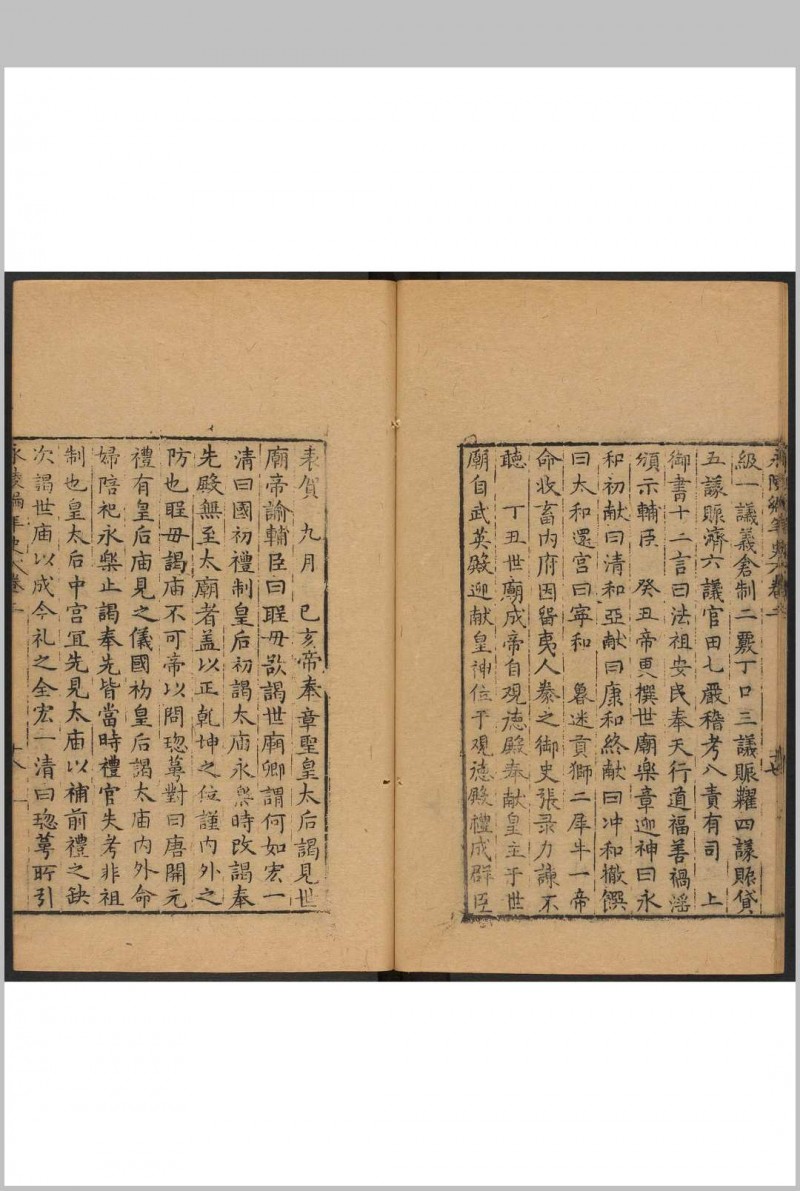 永陵編年史 卷二
級一議義倉制二覈丁口三議賑糶四議賑貸
五議賑濟六議官田七嚴稽考八責有司　上
御書十二言曰法祖安民奉天行道福善禍淫
頒示輔臣　癸丑帝更撰世廟樂章迎神曰永
和初献曰清和亞献曰康和終献曰冲和撤饌
曰太和還宫曰寧和　魯迷貢獅二犀牛一帝
命收畜内府因留夷人豢之御史張录力諫不
聽　丁丑世廟成帝自观德殿奉献皇主于世
廟自武英殿迎献皇神位于观德殿禮成群臣
表賀　九月　己亥帝奉章聖皇太后謁見世
廟帝諭輔臣曰聖母欲謁世廟卿謂何如宏一
清曰國初禮制皇后初謁太庙永樂時改謁奉
先殿無至太廟者盖以正乾坤之位謹内外之
防也聖母謁庙不可帝以問璁萼對曰唐開元
禮有皇后庙見之儀國初皇后謁太庙内外命
婦陪祀永樂止謁奉先皆當時禮官失考非祖
制也皇太后中宫宜先見太庙以補前禮之缺
次謁世庙以成今礼之全宏一清曰璁萼所引
永陵編年史 卷二